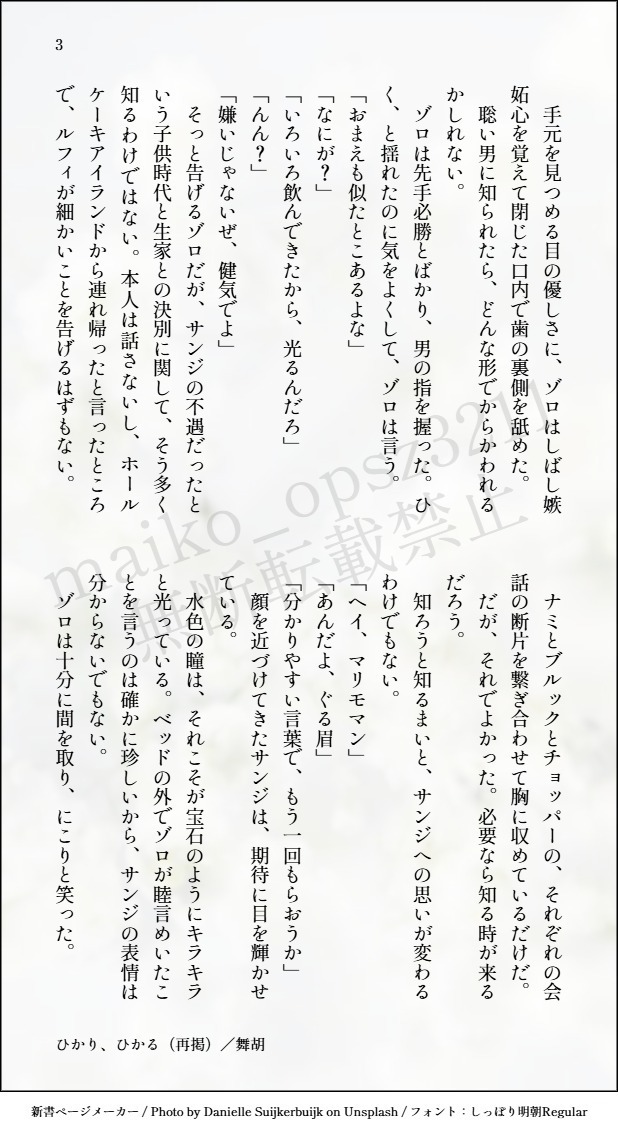 3
手元を見つめる目の優しさに、ゾロはしばし嫉
妬心を覚えて閉じた口内で歯の裏側を舐めた。
聡い男に知られたら、どんな形でからかわれる
かしれない。
ゾロは先手必勝とばかり、男の指を握った。ひ
く、と揺れたのに気をよくして、ゾロは言う。
「おまえも似たとこあるよな」
「なにが？」
「いろいろ飲んできたから、光るんだろ」
「んん？」
「嫌いじゃないぜ、健気でよ」
そっと告げるゾロだが、サンジの不遇だったと
いう子供時代と生家との決別に関して、そう多く
知るわけではない。本人は話さないし、ホール
ケーキアイランドから連れ帰ったと言ったところ
で、ルフィが細かいことを告げるはずもない。
ナミとブルックとチョッパーの、それぞれの会
話の断片を繋ぎ合わせて胸に収めているだけだ。
だが、それでよかった。必要なら知る時が来る
だろう。
知ろうと知るまいと、サンジへの思いが変わる
わけでもない。
「ヘイ、マリモマン」
「あんだよ、ぐる眉」
「分かりやすい言葉で、もう一回もらおうか」
顔を近づけてきたサンジは、期待に目を輝かせ
ている。
水色の瞳は、それこそが宝石のようにキラキラ
と光っている。ベッドの外でゾロが睦言めいたこ
とを言うのは確かに珍しいから、サンジの表情は
分からないでもない。
ゾロは十分に間を取り、にこりと笑った。
maiko_opsz3211
無断転載禁止
ひかり、ひかる（再掲）／舞胡
新書ページメーカー / Photo by Danielle Suijkerbuijk on Unsplash / フォント：しっぽり明朝Regular